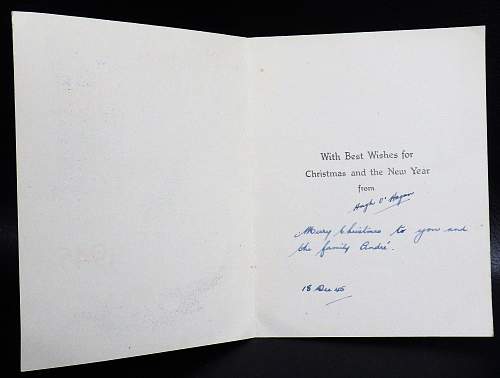 With Best Wishes for
Christmas and the New Year
from
Hugh O'Hagan
Merry Christmas to you and
the family André.
18 Dec 45